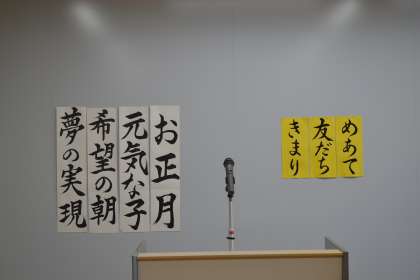 お正月
元気な子
希望の朝
夢の実現
めあて
友だち
きまり